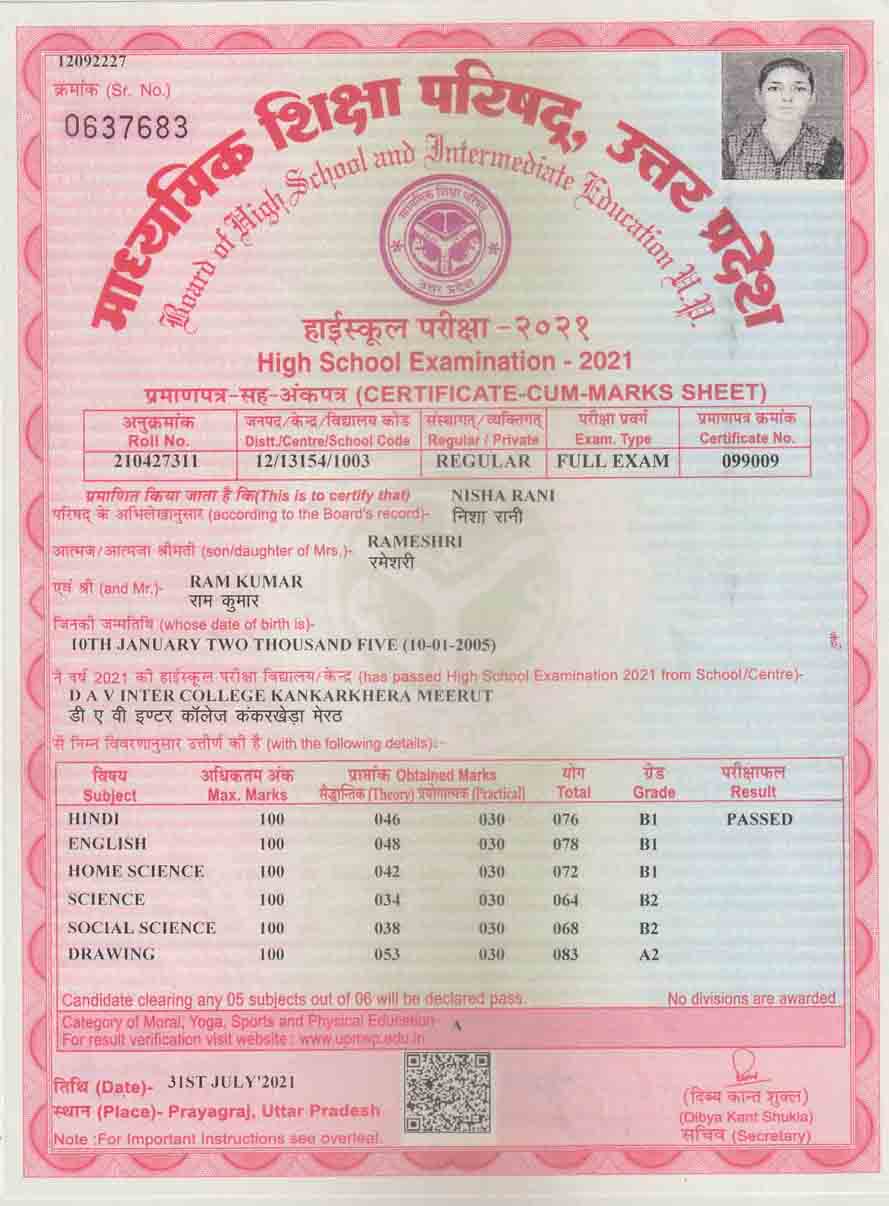 12092227
क्रमांक (Sr. No.)
0637683
माध्यमिक शिक्षा परिषद्, उत्तर प्रदेश
Board of High School and Intermediate Education U.P.
माध्यमिक शिक्षा परिषद्
उत्तर प्रदेश
हाईस्कूल परीक्षा - २०२१
High School Examination - 2021
प्रमाणपत्र-सह-अंकपत्र (CERTIFICATE-CUM-MARKS SHEET)
अनुक्रमांक जनपद/केन्द्र/विद्यालय कोड संस्थागत्/व्यक्तिगत् परीक्षा प्रवर्ग प्रमाणपत्र क्रमांक
Roll No. Distt./Centre/School Code Regular / Private Exam. Type Certificate No.
210427311 12/13154/1003 REGULAR FULL EXAM 099009
प्रमाणित किया जाता है कि(This is to certify that) NISHA RANI
परिषद् के अभिलेखानुसार (according to the Board's record)- निशा रानी
आत्मज/आत्मजा श्रीमती (son/daughter of Mrs.)- RAMESHRI
रमेशरी
एवं श्री (and Mr.)- RAM KUMAR
राम कुमार
जिनकी जन्मतिथि (whose date of birth is)-
10TH JANUARY TWO THOUSAND FIVE (10-01-2005) है,
ने वर्ष 2021 की हाईस्कूल परीक्षा विद्यालय/केन्द्र (has passed High School Examination 2021 from School/Centre)-
D A V INTER COLLEGE KANKARKHERA MEERUT
डी ए वी इण्टर कॉलेज कंकरखेड़ा मेरठ
से निम्न विवरणानुसार उत्तीर्ण की है (with the following details):-
विषय अधिकतम अंक प्राप्तांक Obtained Marks योग ग्रेड परीक्षाफल
Subject Max. Marks सैद्धान्तिक (Theory) प्रयोगात्मक (Practical) Total Grade Result
HINDI 100 046 030 076 B1 PASSED
ENGLISH 100 048 030 078 B1
HOME SCIENCE 100 042 030 072 B1
SCIENCE 100 034 030 064 B2
SOCIAL SCIENCE 100 038 030 068 B2
DRAWING 100 053 030 083 A2
Candidate clearing any 05 subjects out of 06 will be declared pass. No divisions are awarded
Category of Moral, Yoga, Sports and Physical Education- A
For result verification visit website : www.upmsp.edu.in
तिथि (Date)- 31ST JULY'2021
स्थान (Place)- Prayagraj, Uttar Pradesh
Note :For Important Instructions see overleaf.
(दिब्य कान्त शुक्ल)
(Dibya Kant Shukla)
सचिव (Secretary)